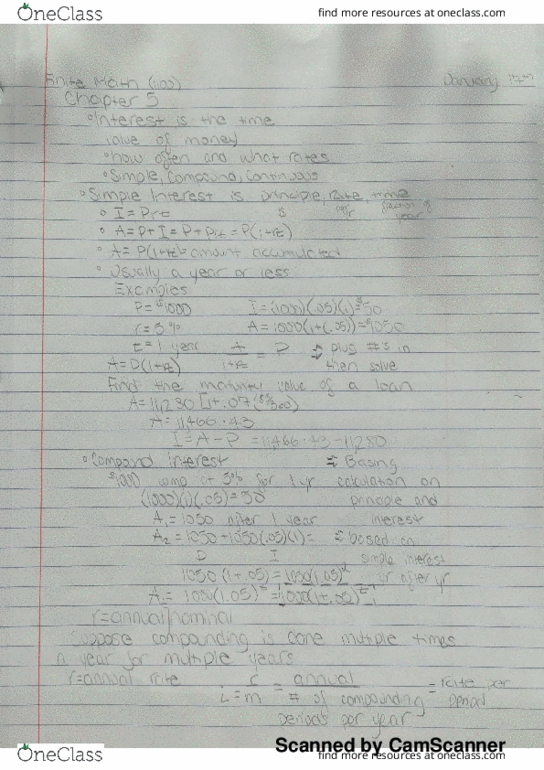 OneClass find more resources at oneclass.com
Finite Math (103) January
Chapter 5
°Interest is the time
value of money
°how often and what rates
°Simple, Compound, Continuous
°Simple Interest is principle, rate, time
° I = Prt $ per year
° A = P+I = P+Prt = P(1+rt)
° A = P(1+rt) = amount accumulated
° Usually a year or less
Examples
P = $1000 I = (1000)(.05)(1) = $50
r = 5% A = 1000(1+(.05)) = $1050
t = 1 year A/1+rt = P plug #s in
A = P(1+rt) then solve
Find the maturity value of a loan
A = 11,280 [1+.07(
A = 11,466.43
I = A - P = 11,466.43 - 11,280
°Compound interest Basing
$1000 comp at 5% for 1 yr calculation on
(1000)(1)(.05) = 50 principle and
A₁ = 1050 after 1 year interest
A₂ = 1050+1050(.05)(1) = based on
P I simple interest
1050(1+.05) = 1000(1.05)² yr after yr
r = annual/nominal
Suppose compounding is done multiple times
a year for multiple years
r = annual rate i = r/m = annual/# of compounding periods per year = rate per period
Scanned by CamScanner
OneClass find more resources at oneclass.com